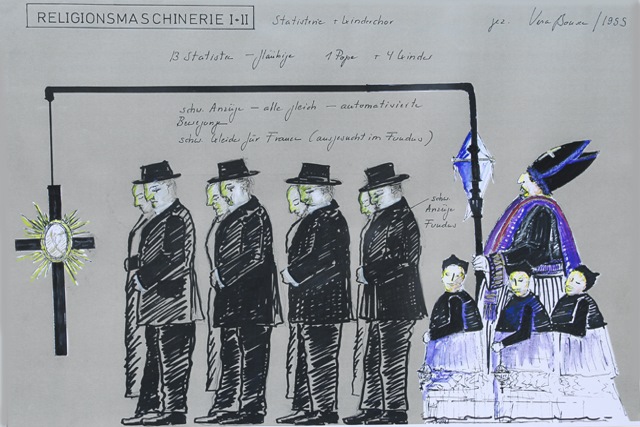 RELIGIONSMASCHINERIE I+II
Statisterie + Kinderchor
gez. Vera /1955
13 Statisten — Gläubige 1 Pope + 4 Kinder
schw. Anzüge — alle gleich — automatisierte
Bewegungen
schw. Kleider für Frauen (ausgesucht im Fundus)
schw.
Anzüge
Fundus